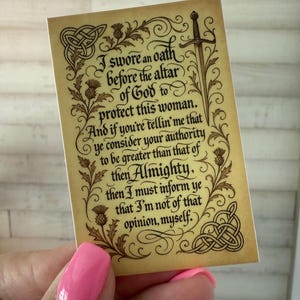 I swore an oath
before the altar
of God to
protect this woman.
And if you're tellin' me that
ye consider your authority
to be greater than that of
then Almighty,
then I must inform ye
that I'm not of that
opinion, myself.